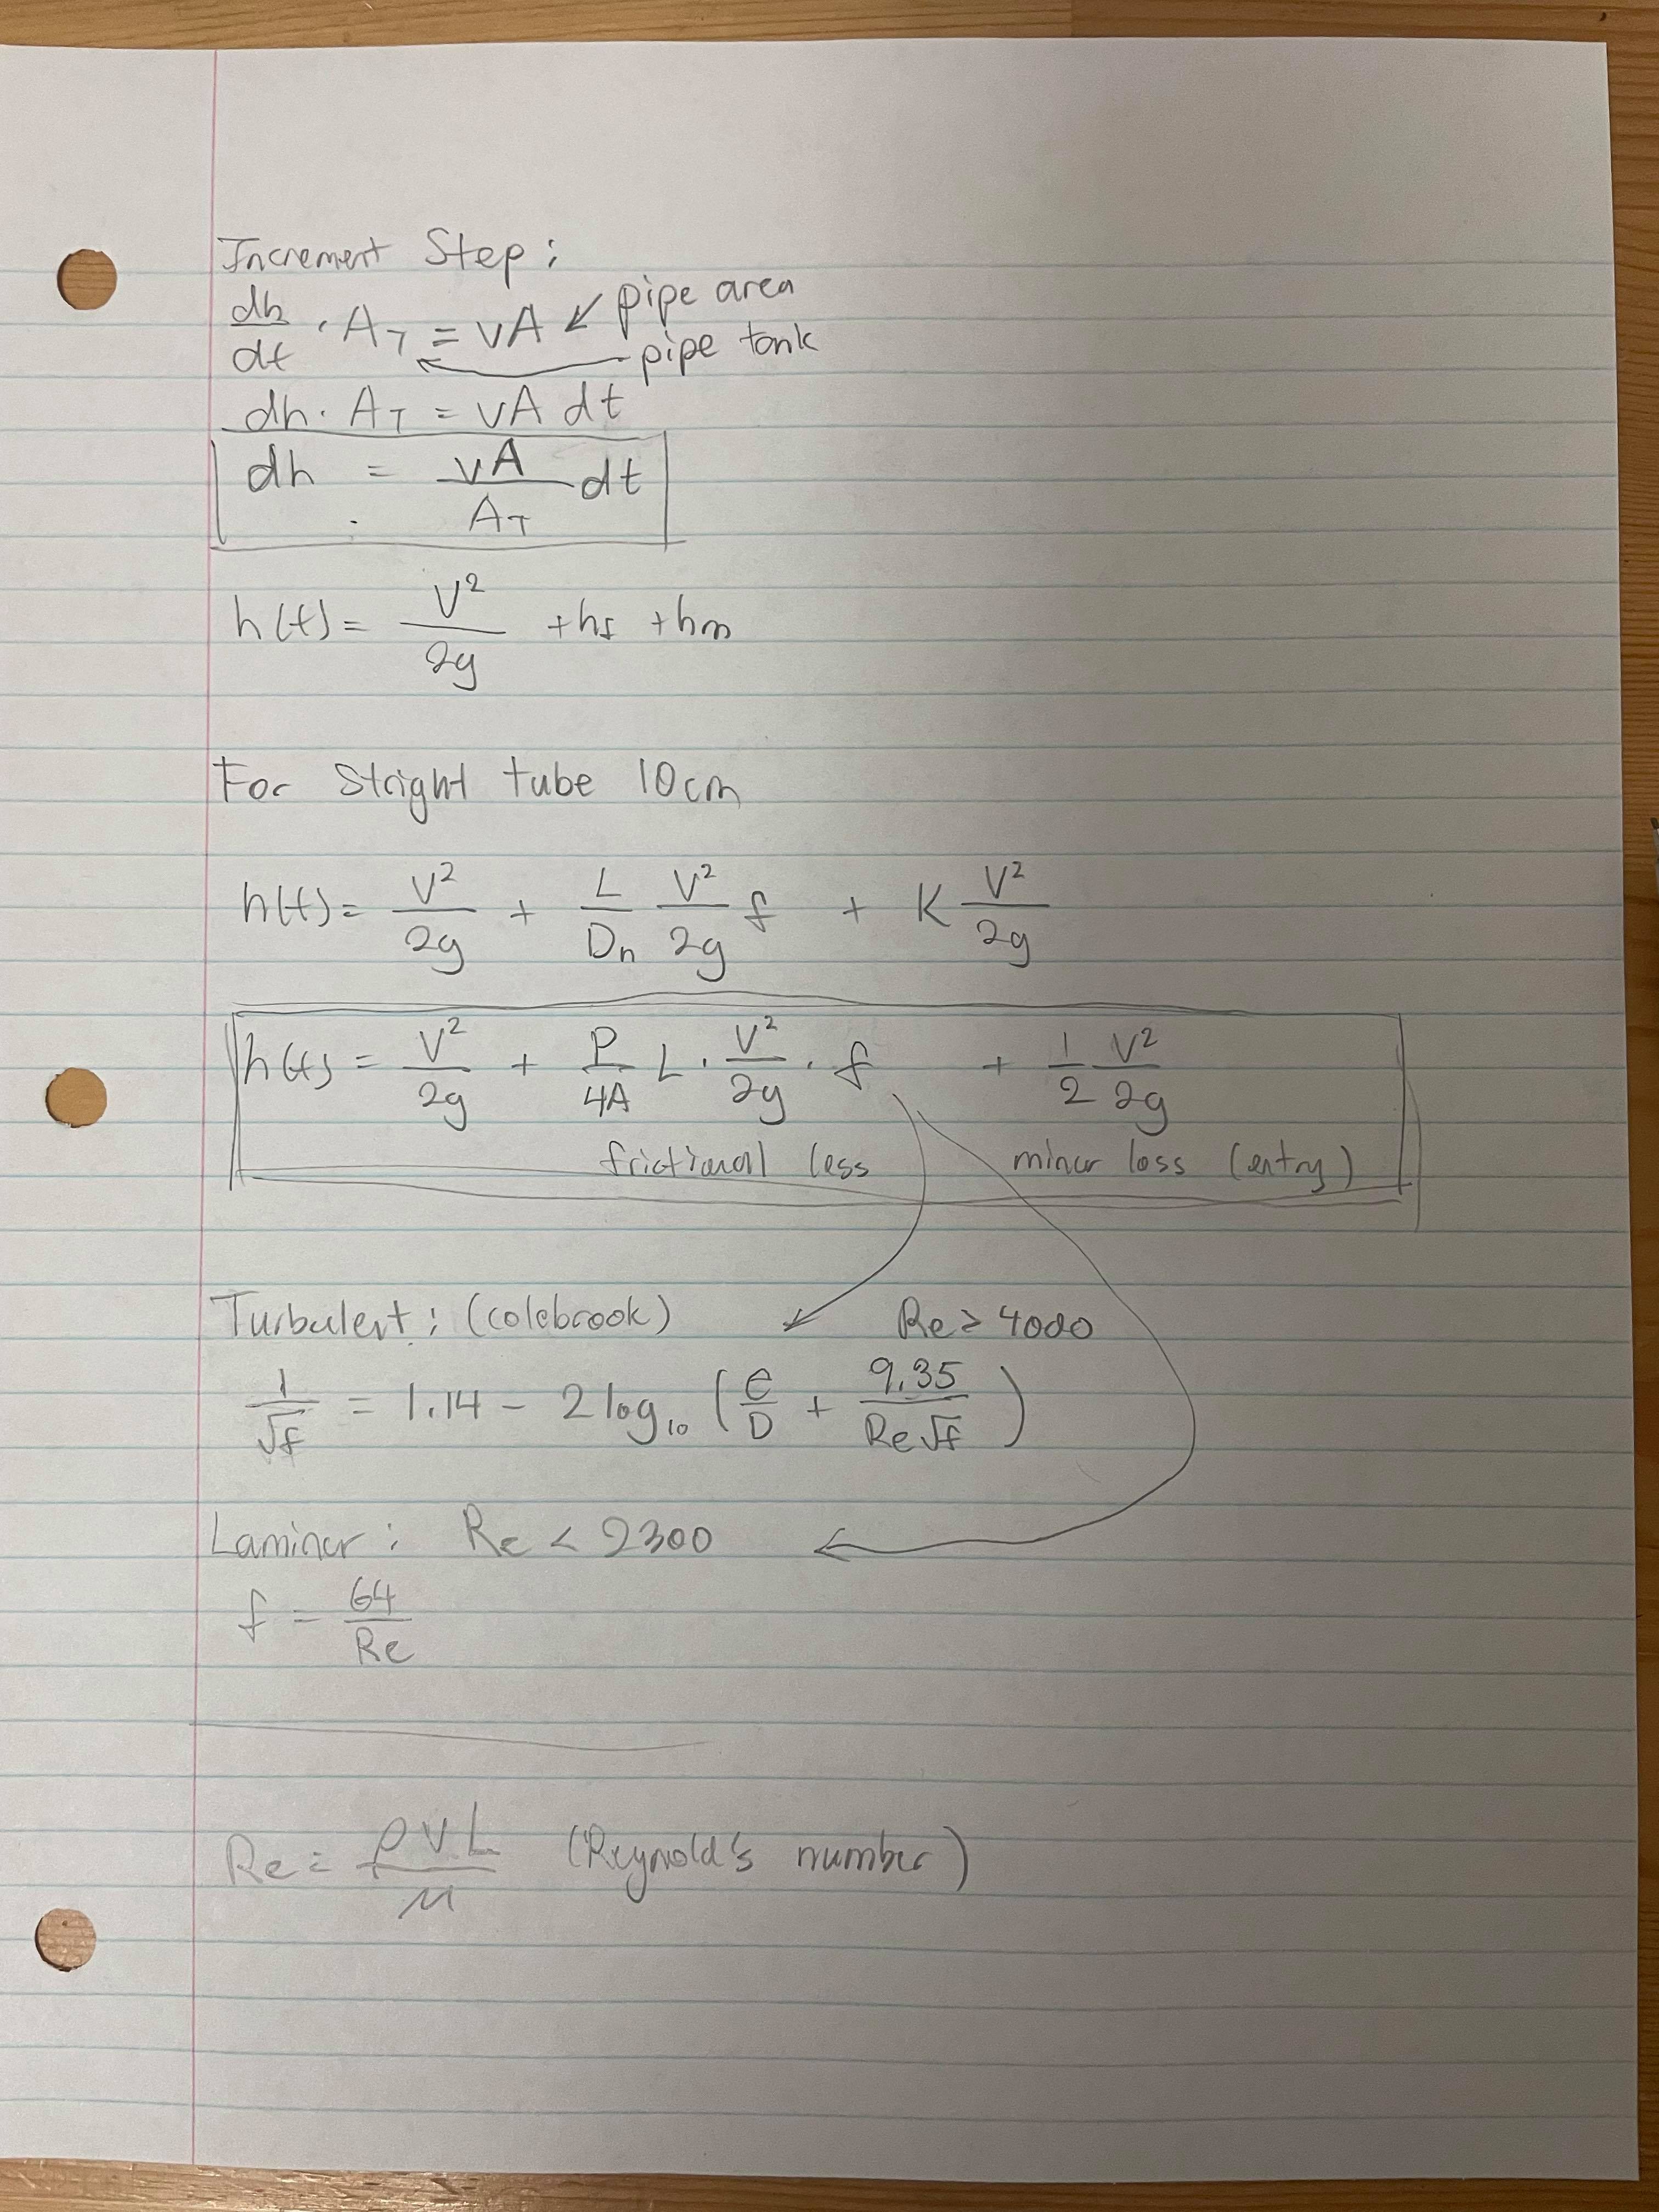 Increment Step:
dh/dt · A_T = vA ↙ pipe area
← pipe tank
dh · A_T = vA dt
dh = vA/A_T dt
h(t) = V²/2g + hf + hm
For Stright tube 10cm
h(t) = V²/2g + L/Dn V²/2g f + K V²/2g
h(t) = V²/2g + P/4A L · V²/2g · f + 1/2 V²/2g
frictional less minor loss (entry)
Turbulent: (colebrook) Re ≥ 4000
1/√f = 1.14 - 2 log₁₀ (e/D + 9.35/Re√f)
Laminar: Re < 2300
f = 64/Re
Re = ρVL/μ (Reynold's number)